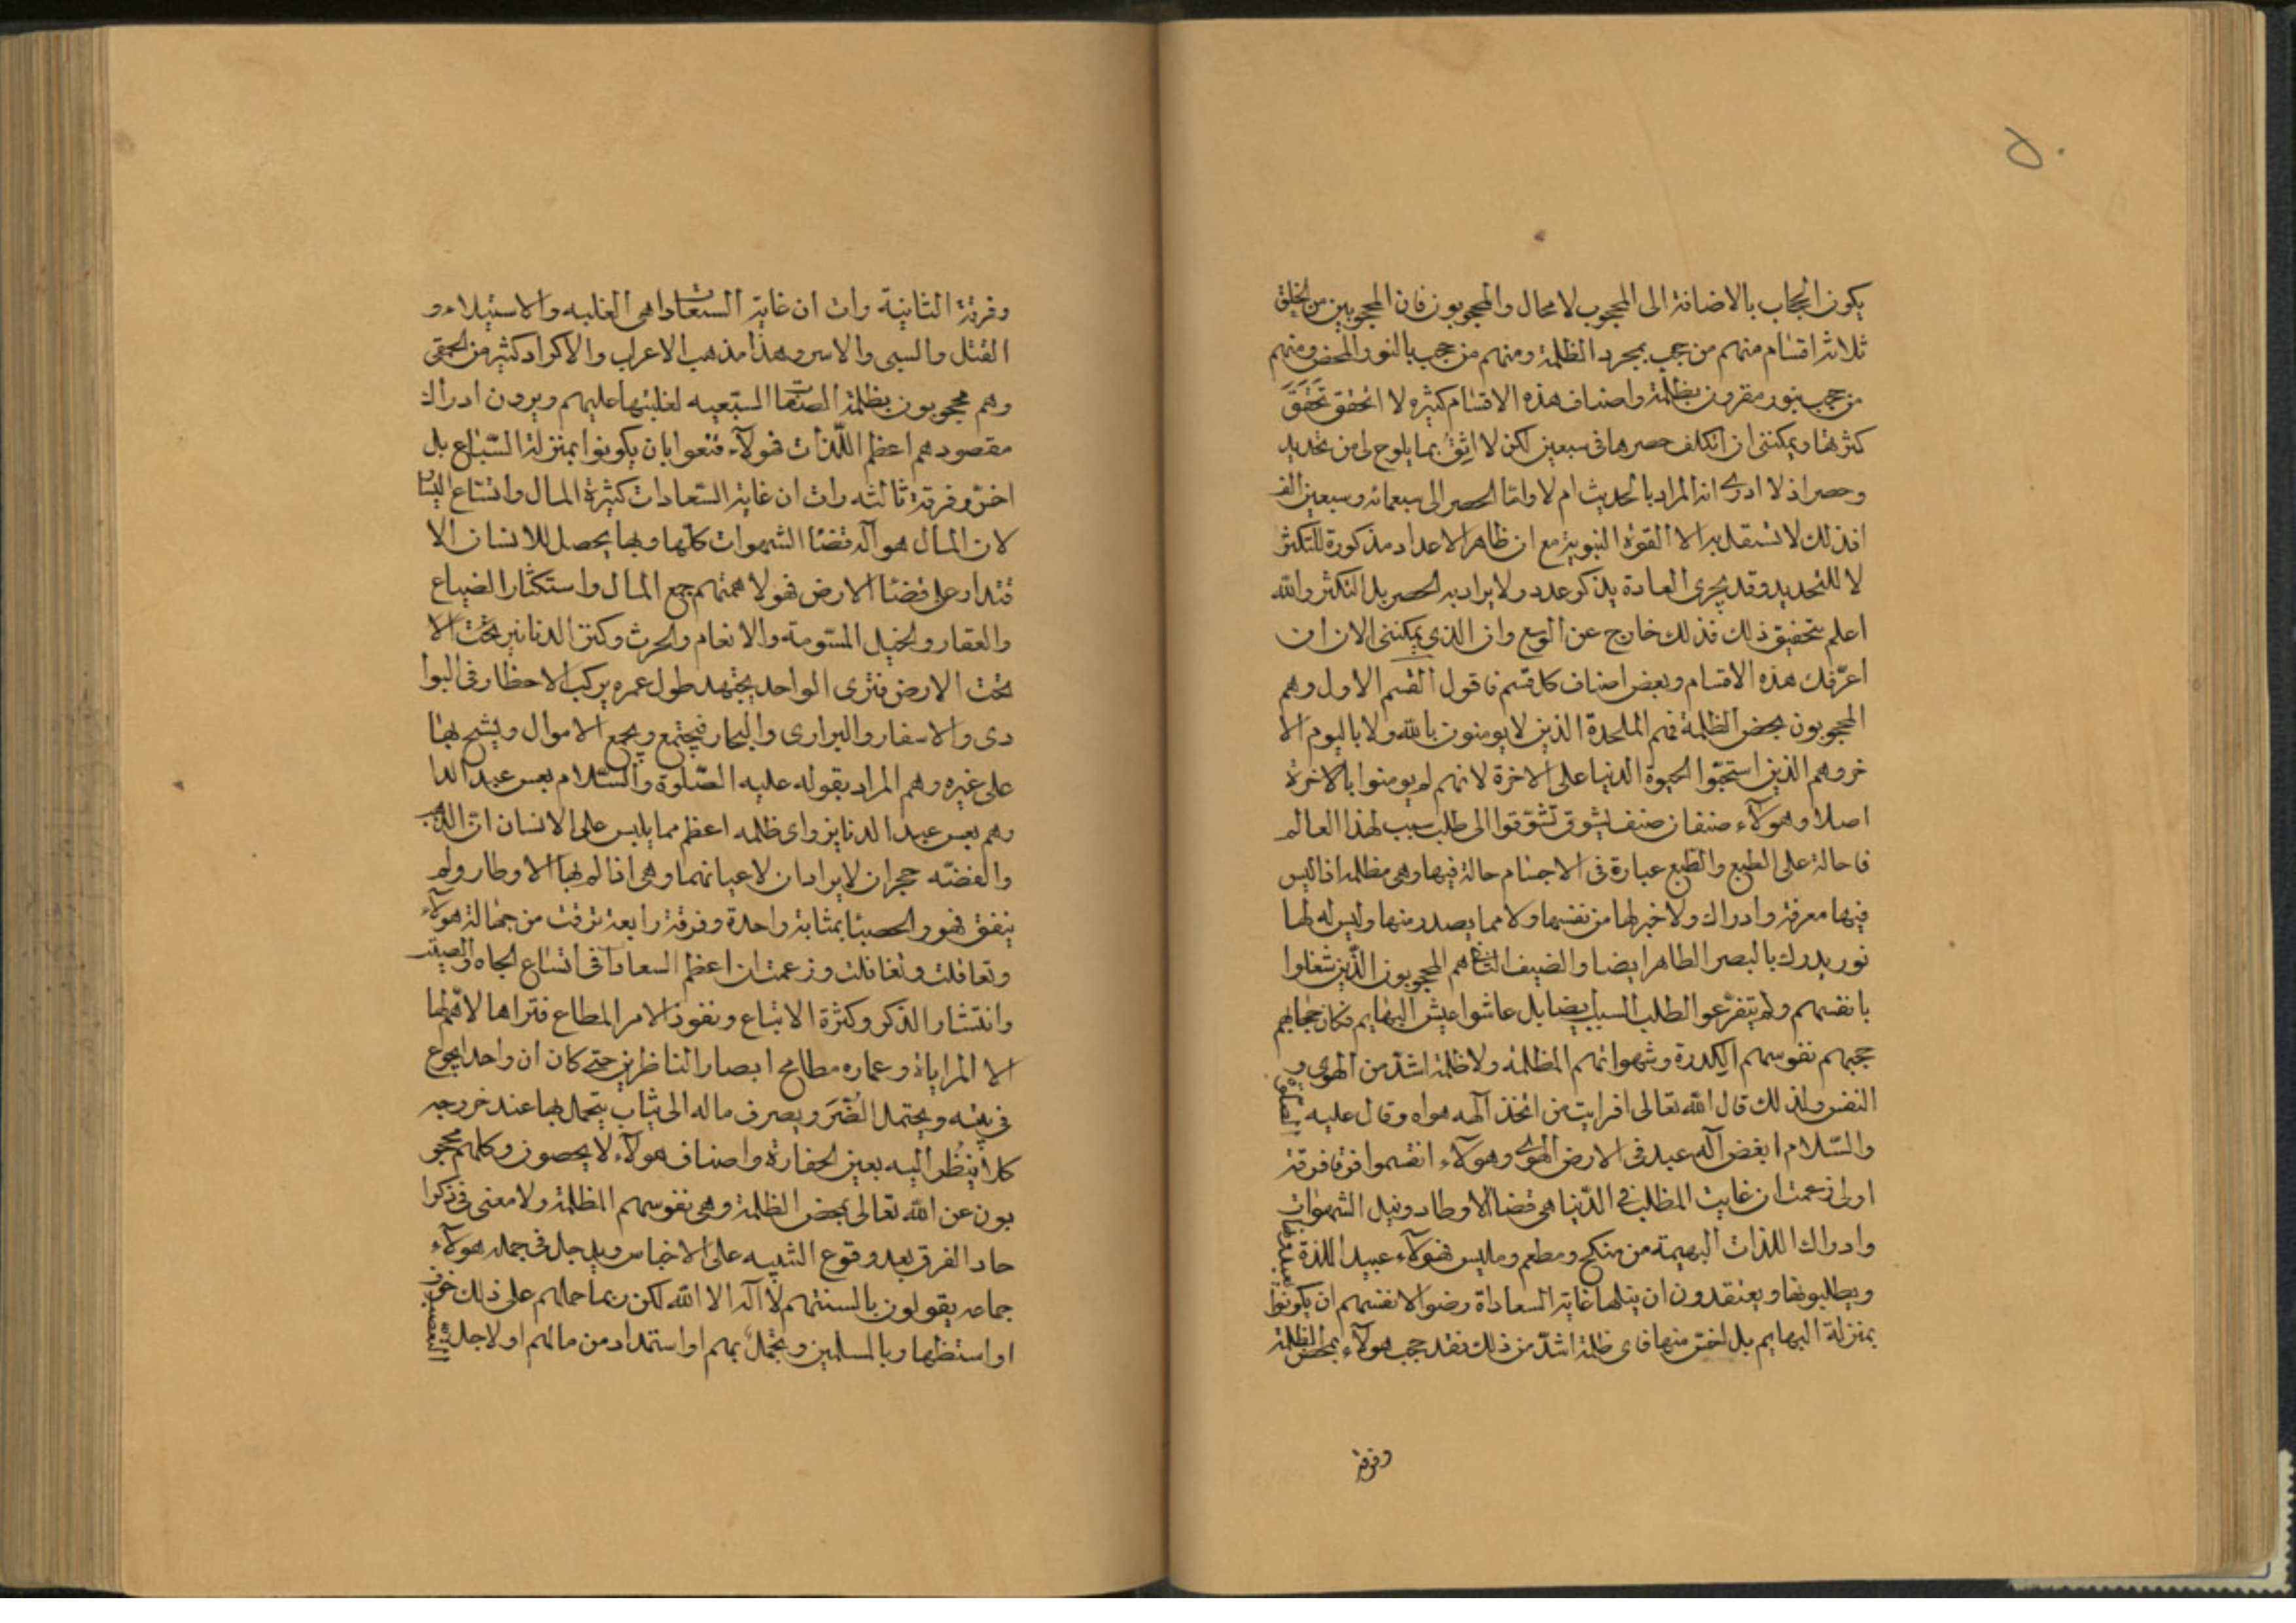 يكون الحجاب بالاضافة الى المحجوب لا محال والمحجوبون فان المحجوبين من الخلق
ثلاثة اقسام منهم من حجب بمجرد الظلمة ومنهم من حجب بالنور المحض ومنهم
من حجب بنور مقرون بظلمة واصناف هذه الاقسام كثيره لا اتحقق تحقق
كثرتها ويمكنني ان اتكلف حصرها في سبعين لكن لا اثق بما يلوح لي من تحديد
وحصر اذ لا ادرى انه المراد بالحديث ام لا واما الحصر الى سبعمائه وسبعين الف
افذلك لا تستقل به الا القوة النبوية مع ان ظاهر الاعداد مذكورة للتكثر
لا للتحديد وقد يجرى العادة يذكر عدد ولا يراد به الحصر بل التكثر والله
اعلم بتحقيق ذلك فذلك خارج عن الوسع وان الذي يمكننى الان ان
اعرّفك هذه الاقسام وبعض اصناف كل قسم فاقول القسم الاول وهم
المحجوبون بمحض الظلمة فهم الملحدة الذين لا يومنون بالله ولا باليوم الا
خر وهم الذين استحبّوا الحيوة الدنيا على الاخرة لانهم لم يومنوا بالاخرة
اصلا وهولآء صنفان صنف يشوق تشوّقوا الى طلب سبب لهذا العالم
فاحالة على الطبع والطبع عبارة في الاجسام حالة فيها وهى مظلمه اذ اليس
فيها معرفة وادراك ولا خبر لها من نفسها ولا مما يصدر منها وليس له لها
نور يدرك بالبصر الطاهر ايضا والضيف الثانى هم المحجوبون الذّين شغلوا
بانفسهم ولم يتفرّعوا لطلب السبب ايضا بل عاشوا عيش البهايم فكان حجابهم
حجبهم نفوسهم الكدرة وشهواتهم المظلمة ولا ظلمة اشدّ من الهوى و
النفس ولذلك قال الله تعالى افرايت من اتخذ آلهه هواه وقال عليه الصلوة
والسّلام ابغض آله عبد فى الارض الهوى وهولآء انقسموا فرقا فرقة
اولى زعمت ان غايت المطلب في الدّنيا هى قضا الاوطار ونيل الشهوات
وادراك اللذات البهيمة من منكح ومطعم وملبس فهولآء عبيد اللذة يعبدونها
ويطلبونها ويعتقدون ان ينلها غاية السعاداة رضوا لانفسهم ان يكونوا
بمنزلة البهايم بل اخسّ منها فاى ظلمة اشدّ من ذلك فقد حجب هولآء بمحض الظلمة
وفرقة
وفرقة الثانية رات ان غاية السعادات هى الغلبه والاستيلاء و
القتل والسبى والاسر وهذا مذهب الاعراب والاكراد كثير من الحمقى
وهم محجوبون بظلمة الصفات السّبعيه لغلبتها عليهم ويرون ادراك
مقصودهم اعظم اللّذات فهولآء قنعوا بان يكونوا بمنزلة السّباع بل
اخسّ وفرقة ثالثه رات ان غاية السّعادات كثرة المال واتساع اليسار
لان المال هو آلة قضا الشهوات كلّها وبها يحصل للانسان الا
قتدار على قضا الارض فهولا همتهم جمع المال واستكثار الضياع
والعقار والخيل المسّومة والانعام والحرث وكنز الدنانير تحت الا
تحت الارض فترى الواحد يجتهد طول عمره يركب الاحظار فى البوا
دى والاسفار والبرارى والبحار فيجتمع ويجمع الاموال ويشح بها
على غيره وهم المراد بقوله عليه الصّلوة والسّلام يعس عبد الدا
رهم يعس عبد الدنانير واى ظلمه اعظم مما يلبس على الانسان انّ الذّهب
والفضّه حجران لا يرادان لاعيانهما وهى اذا لم لها الاوطار ولم
ينفق فهو والحصبا بمثابة واحدة وفرقة رابعة ترقت من جهالة هولآء
وتعاقلت وتغافلت وزعمت ان اعظم السعادات فى اتساع الجاه والصيت
وانتشار الذكر وكثرة الاتباع ونفوذ الامر المطاع فتراها لا هم لها
الا المراياة وعماره مطامح ابصار الناظرين حتى كان ان واحد ايجوع
فى بيته ويحتمل الضّرّ ويصرف ماله الى ثياب يتجمل بها عند خروجه
كلا ينظر اليه بعين الحقارة واصناف هولآء لا يحصون وكلهم محجو
بون عن الله تعالى بمحض الظلمة وهى نفوسهم المظلمة ولا معنى فى ذكرا
حاد الفرق بعد وقوع الشبيه على الاجناس ويدجل فى جمله هولآء
جماعه يقولون بالسنتهم لا آله الا الله لكن ربما حملهم على ذلك خوف
او استظهار بالمسلمين وتجمل بهم او استمداد من مالهم او لاجل التعصب